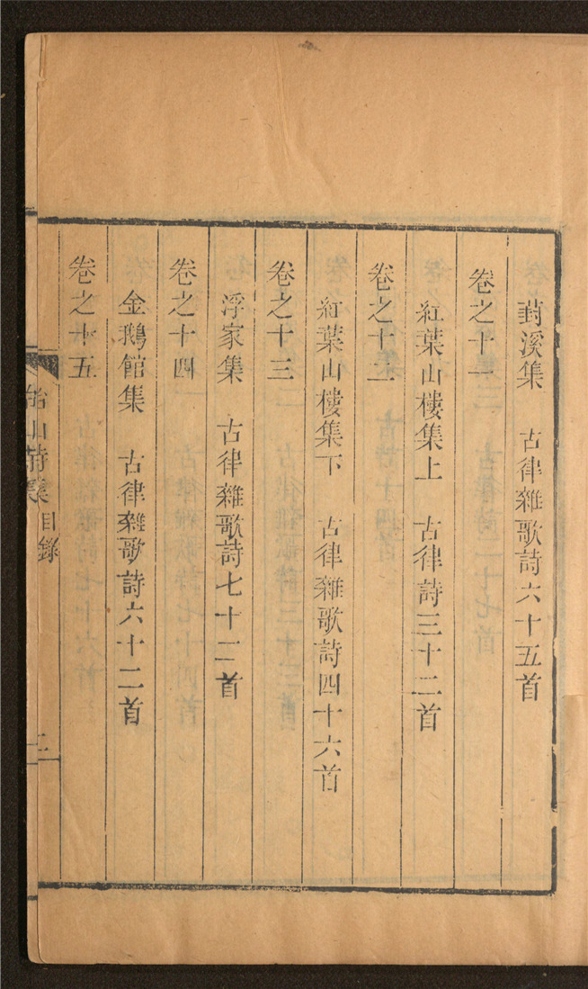 葑溪集 古律雜歌詩六十五首
卷之十一
紅葉山樓集上 古律詩三十二首
卷之十二
紅葉山樓集下 古律雜歌詩四十六首
卷之十三
浮家集 古律雜歌詩七十二首
卷之十四
金鵝館集 古律雜歌詩六十二首
卷之十五
山詩集 目錄